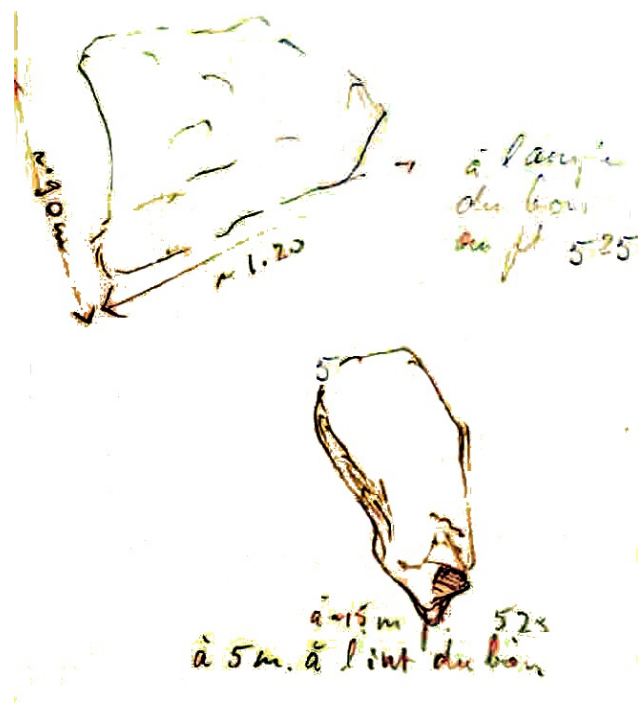 ~90m
~ 1.20
à l'angle
du bois
au pt 525
5
à ~15 m p. 52
à 5 m. à l'int du bois